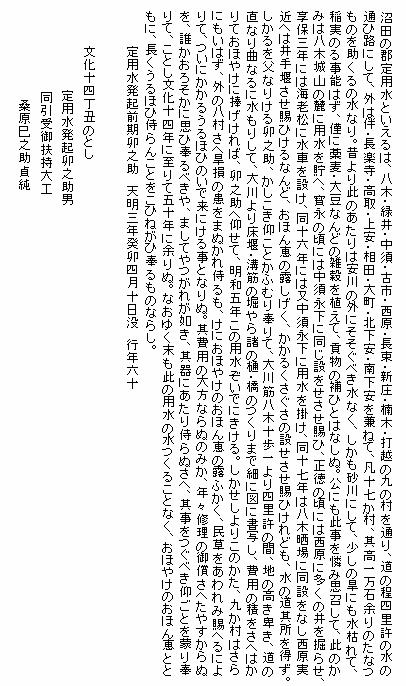 沼田の郡定用水といえるは、八木・緑井・中須・古市・西原・長束・新庄・楠木・打越の九の村を通り、道の程四里許の水の
通ひ路にして、外に伴・長楽寺・高取・上安・相田・大町・北下安・南下安を兼ねて、凡十七か村、其高一万石余りのたなつ
ものを助くるの水なり。昔より此のあたりは安川の外にそそぐべき水なく、しかも砂川にして、少しの旱にも水枯れて、
稲実のる事能はず、僅に蕎麦・大豆なんどの雑穀を植えて、貢物の補ひとはなしぬ。公にも此事を憐み思召して、此のか
みは八木城山の麓に用水を貯へ、寛永の頃には中須永下に同じ設をせさせ賜ひ、正徳の頃には西原に多くの井を掘らせ、
享保三年には海老松に水車を設け、同十六年には又中須永下に用水を掛け、同十七年は八木晒場に同設をなし西原実
近へは井手堰させ賜ひけるなんど、おほん恵の露しげく、かかるくさぐさの設せさせ賜ひけれども、水の道其所を得ず。
しかるを父なりける卯之助、かしこき仰ことかふむり奉りて、大川筋八木十歩一より四里許の間、地の高き卑き、道の
直なり曲なるに水もりして、大川より床堰・溝筋の堀やら諸の樋・橋のつくりまで細に図に書写し、費用の積をさへはか
りておほやけに捧げければ、卯之助へ仰せて、明和五年この用水ぞいでにきける。しかせしよりこのかた、九か村はさら
にもいはず、外の八村さへ旱損の患をまぬかれ侍るも、けにおほやけのおほん恵の露ふかく、民草をあわれみ賜へるによ
りて、ついにかかるうるほひのいで来にける事となりぬ。其費用の大方ならぬのみか、年々修理の御償さへたやすからぬ
を、誰かおろそかに思ひ奉るべきや、ましてやつがれが如き、其器にあたり侍らぬさへ、其事をつぐべき仰ごとを蒙り奉
りて、ことし文化十四年に至りて五十年に余りぬ。なおゆく末も此の用水の水つくることなく、おほやけのおほん恵とと
もに、長くうるほひ侍らんことをこひねがひ奉るものならし。
定用水発起前期卯之助 天明三年癸卯四月十日没 行年六十
文化十四丁丑のとし
定用水発起卯之助男
同引受御扶持大工
桑原巳之助貞純